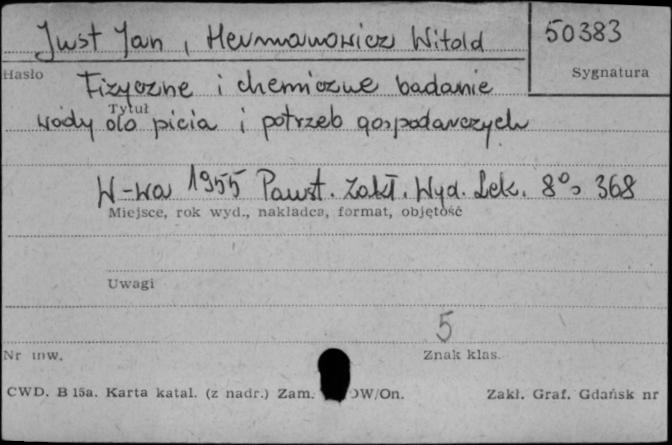 Just Jan, Hermanowicz Witold
50383
Hasło
Sygnatura
Fizyczne i chemiczne badanie
Tytuł
wody do picia i potrzeb gospodarczych
W-wa 1955 Państ. Zakł. Wyd. Lek. 8°, 368
Miejsce, rok wyd., nakładca, format, objętość
Uwagi
5
Nr inw.
Znak klas.
CWD. B 15a. Karta katal. (z nadr.) Zam. OW/On.
Zakł. Graf. Gdańsk nr